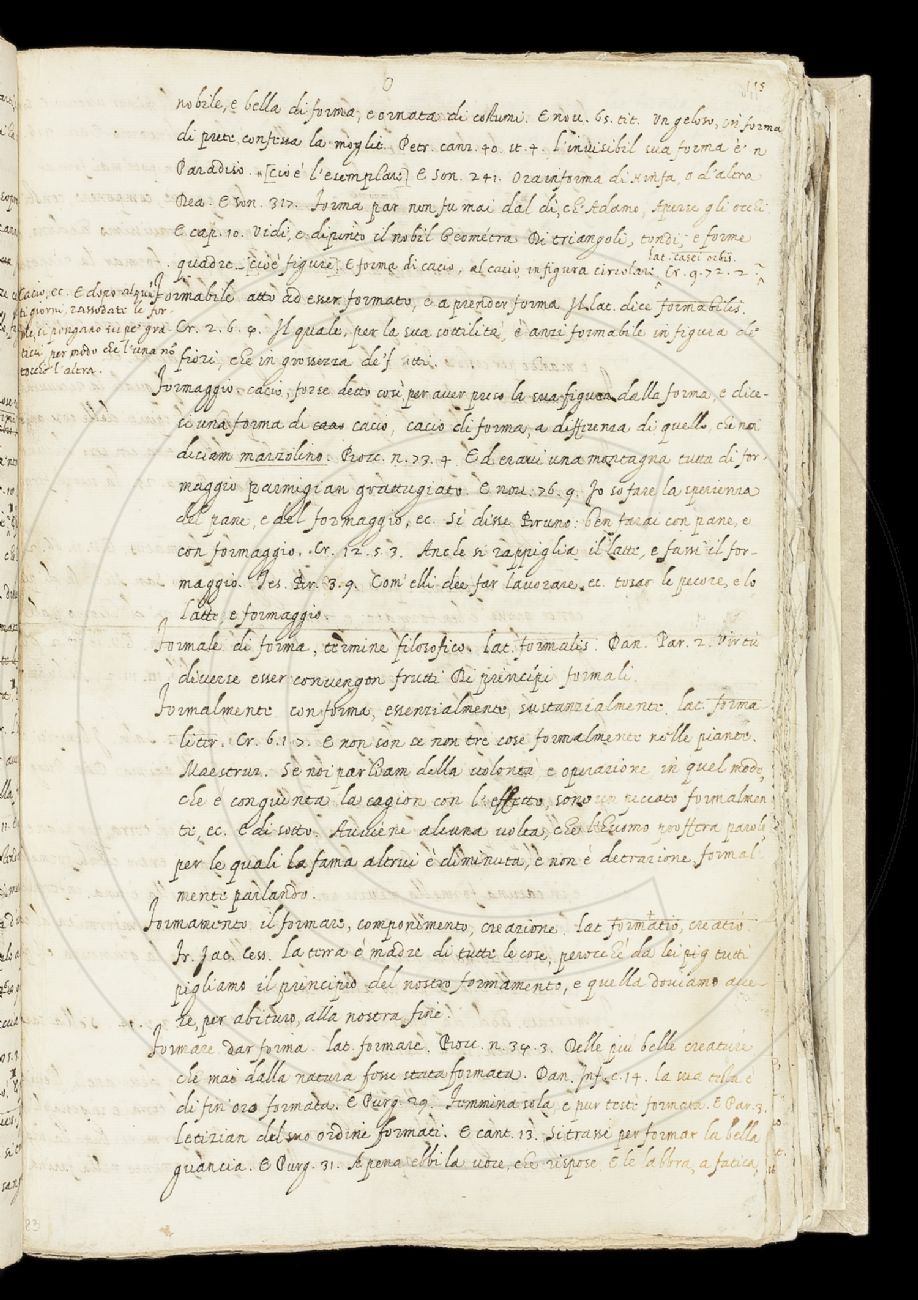 nobile, e bella di forma, e ornata di costumi. E nov. 65. tit. Un geloso, in forma
di prete, confessa la moglie. Petr. canz. 40. st. 4. l'invisibil sua forma è 'n
Paradiso. [cioè l'esemplare] E Son. 241. Ora in forma di Ninfa, o d'altra
Dea. E son. 317. Forma par non fu mai dal dì, ch'Adamo, Aperse gli occhi
E cap. 10. Vidi, e dipinto il nobil Geométra Di triangoli, tondi, e forme
lat. casei orbis.
quadre. [cioè figure] E forma di cacio, al cacio in figura circolare. Cr. 9. 72. 2.
Cacio, ec. E dopo alquanti
giorni, rassodate le for-
me, si pongano su pe' gra-
ticci, per modo che l'una nō
tocchi l'altra.
Formabile. atto ad esser formato, e a prender forma. lat. dice formabilis.
Cr. 2. 6. 9. Il quale, per la sua sottilità, è anzi formabile in figura de'
fiori, che in grossezza de' frutti.
Formaggio. cacio, forse detto così per aver preso la sua figura dalla forma, e dice-
si una forma di cacio, cacio di forma, a differenza di quello, che noi
diciam marzolino. Bocc. n. 73. 4. Ed eravi una montagna tutta di for-
maggio parmigian grattugiato. E nov. 76. 9. Io so fare la sperienza
del pane, e del formaggio, ec. Si disse Bruno: ben farai con pane, e
con formaggio. Cr. 12. 5. 3. Anche si rappiglia il latte, e fassi il for-
maggio. Tes. Br. 3. 9. Com'elli dee far lavorare, ec. tosar le pecore, e lo
latte, e formaggio.
Formale di forma, termine filosofico. lat. formalis. Dan. Par. 2. Virtù
diverse esser convengon frutti Di princípi formali.
Formalmente con forma, essenzialmente, sustanzialmente. lat. forma-
liter. Cr. 6. 1. 7. E non son se non tre cose formalmente nelle piante.
Maestruz. Se noi parliam della volontà e operazione in quel modo,
che è congiunta la cagion con l'effetto, sono un peccato formalmen-
te, ec. E di sotto. Avviene alcuna volta, che l'huomo profferà parole,
per le quali la fama altrui è diminuta, e non è detrazione formal-
mente parlando.
Formamento. il formare, componimento, creazione. lat. formatio, creatio.
Fr. Jac. Cess. La terra è madre di tutte le cose, perocch' da lei tutti
pigliamo il principio del nostro formamento, e quella doviamo ave-
re, per abituro, alla nostra fine.
Formare. dar forma. lat. formare. Bocc. n. 34. 3. Delle più belle creature
che mai dalla natura fosse stata formata. Dan. Inf. c. 14. La sua testa è
di fin oro formata. E Purg. 29. Femmina sola, e pur testè formata. E Par. 3.
Letizian del suo ordine formati. E cant. 13. Si trasse per formar la bella
guancia. E Purg. 31. A pena ebbi la voce, che rispose E le labbra, a fatica,
83